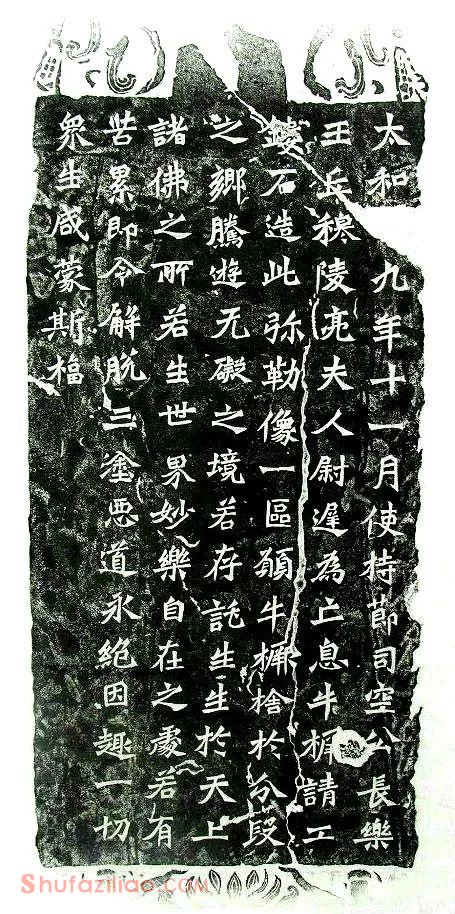 太和九年十一月使持節司空公長樂
王丘穆陵亮夫人尉遲為亡息牛橛請工
鏤石造此弥勒像一區願牛橛捨於分段
之鄉騰遊无礙之境若存託生生於天上
諸佛之所若生世界妙樂自在之處若有
苦累即令解脫三塗惡道永絕因趣一切
衆生咸蒙斯福
Shufaziliao.com